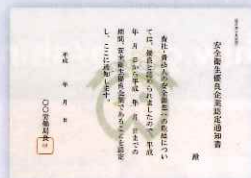 安全衛生優良企業認定通知書
殿
貴社・貴法人の安全衛生への取組につい
て、優良と認められましたので、平成
年 月 日から平成 年 月 日までの
期間、安全衛生優良企業であることを認定
し、ここに通知します。
平成 年 月 日
〇〇労働局長